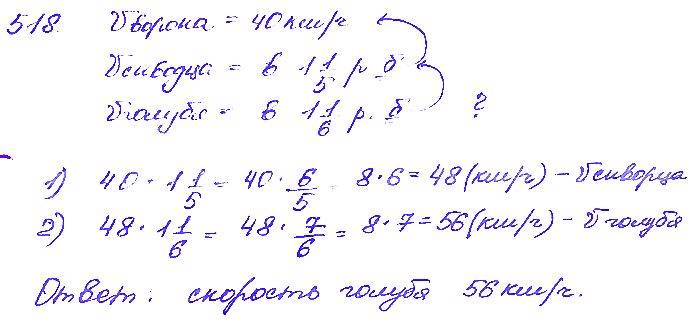 518. Vворона = 40 км/ч
Vскворца = в 1 1/5 р. б
Vголубя = в 1 1/6 р. б ?
1) 40 · 1 1/5 = 40 · 6/5 = 8 · 6 = 48 (км/ч) - Vскворца
2) 48 · 1 1/6 = 48 · 7/6 = 8 · 7 = 56 (км/ч) - Vголубя
Ответ: скорость голубя 56 км/ч.